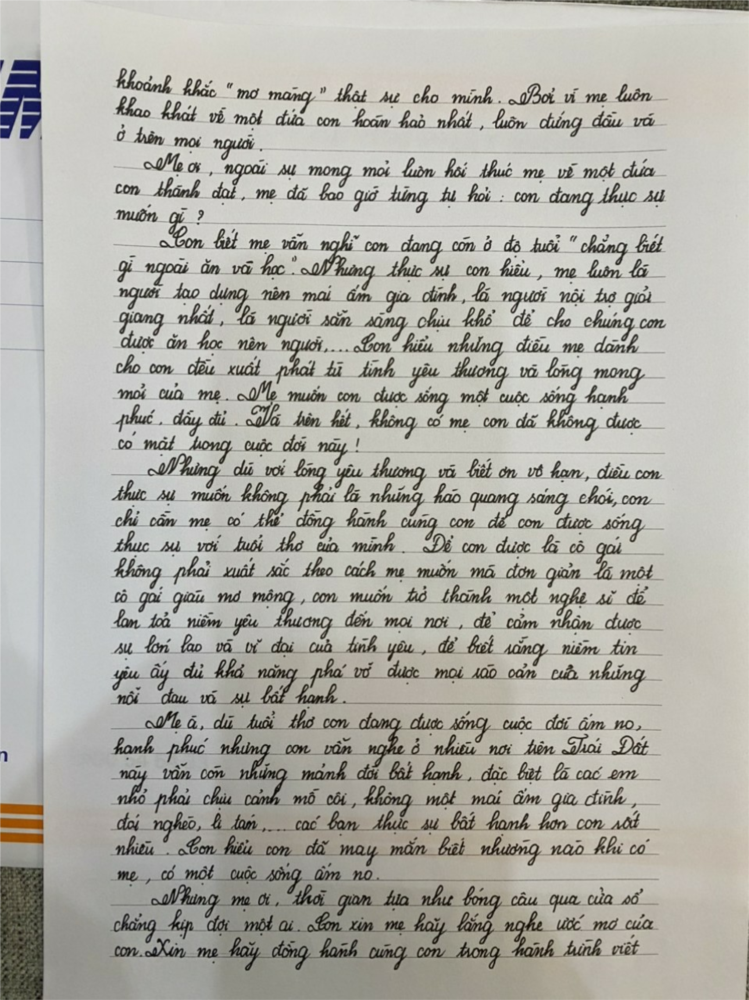 khoảnh khắc "mơ màng" thật sự cho mình. Bởi vì mẹ luôn
khao khát về một đứa con hoàn hảo nhất, luôn đứng đầu và
ở trên mọi người.
Mẹ ơi, ngoài sự mong mỏi luôn hối thúc mẹ về một đứa
con thành đạt, mẹ đã bao giờ từng tự hỏi: con đang thực sự
muốn gì?
Con biết mẹ vẫn nghĩ con đang còn ở độ tuổi "chẳng biết
gì ngoài ăn và học". Nhưng thực sự con hiểu, mẹ luôn là
người tạo dựng nên mái ấm gia đình, là người nội trợ giỏi
giang nhất, là người sẵn sàng chịu khổ để cho chúng con
được ăn học nên người,... Con hiểu những điều mẹ dành
cho con đều xuất phát từ tình yêu thương và lòng mong
mỏi của mẹ. Mẹ muốn con được sống một cuộc sống hạnh
phúc, đầy đủ. Và trên hết, không có mẹ con đã không được
có mặt trong cuộc đời này!
Nhưng dù với lòng yêu thương và biết ơn vô hạn, điều con
thực sự muốn không phải là những hào quang sáng chói, con
chỉ cần mẹ có thể đồng hành cùng con để con được sống
thực sự với tuổi thơ của mình. Để con được là cô gái
không phải xuất sắc theo cách mẹ muốn mà đơn giản là một
cô gái giàu mơ mộng, con muốn trở thành một nghệ sĩ để
lan toả niềm yêu thương đến mọi nơi, để cảm nhận được
sự lớn lao và vĩ đại của tình yêu, để biết rằng niềm tin
yêu ấy đủ khả năng phá vỡ được mọi rào cản của những
nỗi đau và sự bất hạnh.
Mẹ à, dù tuổi thơ con đang được sống cuộc đời ấm no,
hạnh phúc nhưng con vẫn nghe ở nhiều nơi trên Trái Đất
này vẫn còn những mảnh đời bất hạnh, đặc biệt là các em
nhỏ phải chịu cảnh mồ côi, không một mái ấm gia đình,
đói nghèo, li tán,... các bạn thực sự bất hạnh hơn con rất
nhiều. Con hiểu con đã may mắn biết nhường nào khi có
mẹ, có một cuộc sống ấm no.
Nhưng mẹ ơi, thời gian tựa như bóng câu qua cửa sổ
chẳng kịp đợi một ai. Con xin mẹ hãy lắng nghe ước mơ của
con. Xin mẹ hãy đồng hành cùng con trong hành trình viết